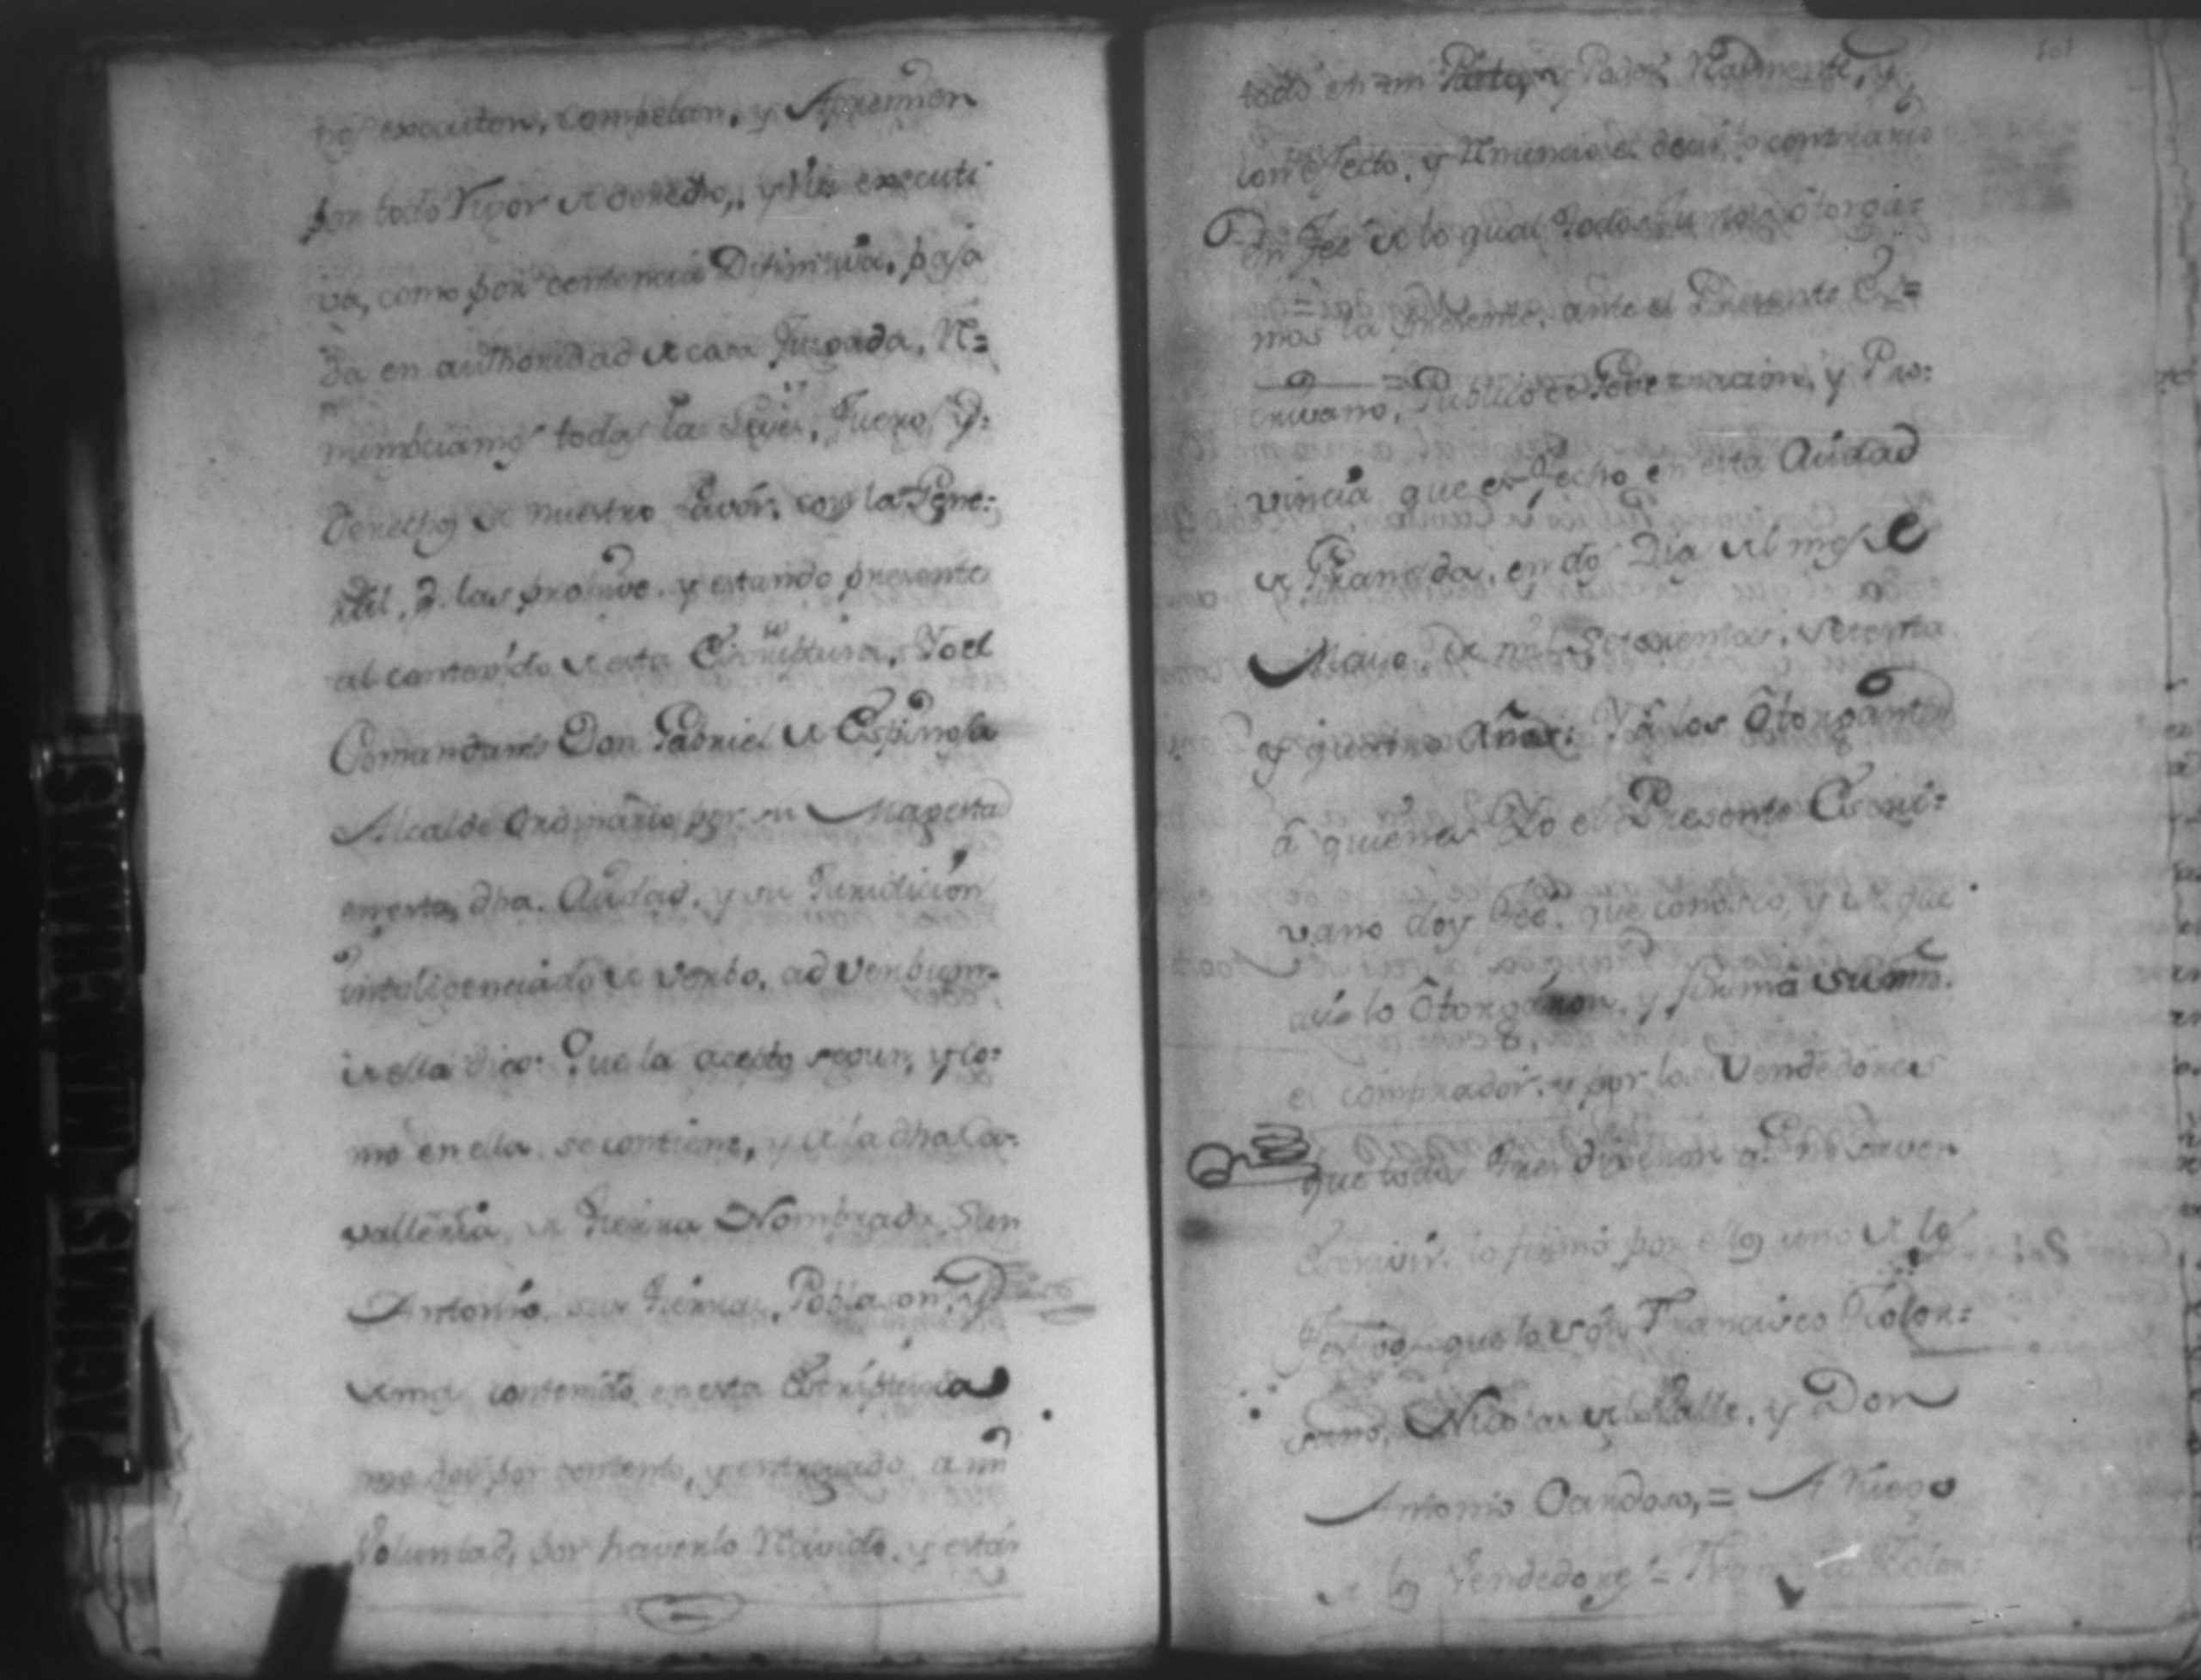 nos executen, compelan, y Apremien
por todo Rigor de derecho, y Via executi
va, como por centencia Difinitiva, pasa
da en authoridad de cosa Juzgada, Re=
nunciamos todas las Leyes, Fueros, y
derechos de nuestro Favor, con la Gene:
ral, q. las prohive. y estando presente
al contenido de esta Escriptura, Yo el
Comandante Don Gabriel de Espinola
Alcalde Ordinario por su Magestad
en esta dha. Ciudad, y su Juridicion
inteligenciado de verbo, ad verbum.
de ella digo: Que la acepto segun, y co:
mo en ella se contiene, y de la dha Ca-
valleria de tierra Nombrada San
Antonio sus tierras, Poblason, y
demas contenido en esta Escriptura
me doi por contento, y entregado a mi
Voluntad, por haverlo Recivido, y estar
todo en mi Parte, y Poder Realmente, y
con efecto, y Renuncio el decir lo contrario
En Fee de lo qual todos Juntos otorga=
mos la presente, ante el Presente Es=
crivano, Publico de Governacion, y Pro:
vincia que es fecho en esta Ciudad
de Granada, en dos Dias del mes de
Mayo, de mil Setesientos, Setenta
y quatro Años: Y â los Otorgantes
â quienes Yo el Presente Escri=
vano doy Fee, que conosco, y de que
asi lo Otorgaron, y firmâ su mrd.
el comprador, y por los Vendedores
que todos tres dixeron q.e no saven
Escrivir, lo firmó por ellos uno de los
Testigos que lo son Francisco Solor=
sano, Nicolas del Valle, y Don
Antonio Cardoso, = A Ruego
de los Vendedores = Francisco Solor=